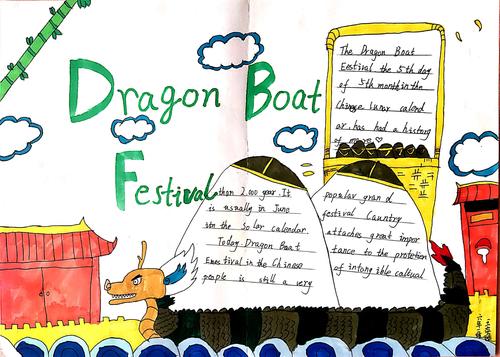 Dragon Boat
Festival
The Dragon Boat
Eestival the 5th day
of 5th month in the
Chinese lunar calend
ar has had a history
of more
than 2.000 year. It
is usually in Juno
in the So lar calendar.
Today Dragon Boat
Emestival in the Chinese
people is still a very
popular gran d
festival Cauntry
attaches great impor
tance to the protection
of intang ible cultual